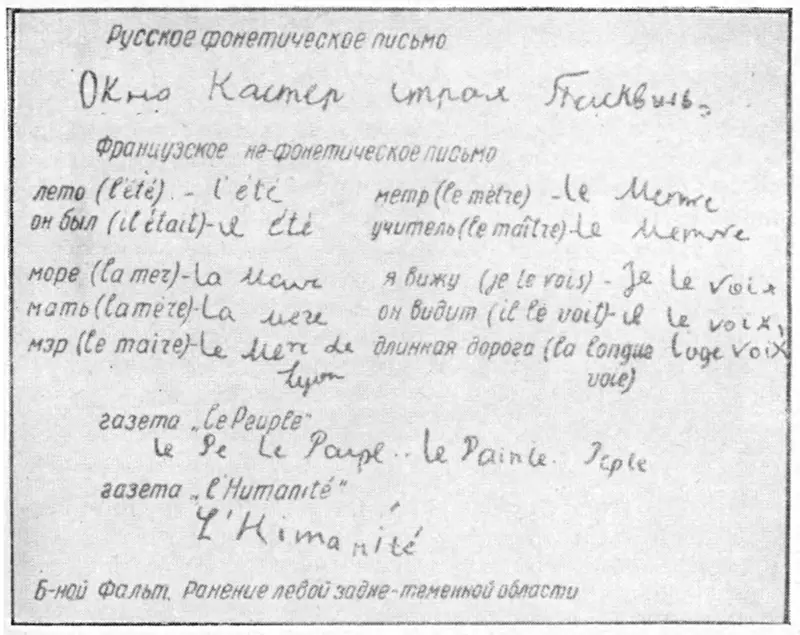 Русское фонетическое письмо
Окно Костер страх
Французское не-фонетическое письмо
лето (l'été) - l'été метр (le mètre) - le Memre
он был (il était) - il été учитель (le maître) - le Memore
море (la mer) - la я вижу (je le vois) - Je le voix
мать (la mère) - la mere он видит (il le voit) - il le voix,
мэр (le maire) - le Mere de длинная дорога (la longue loge voix
Lyon voie)
газета „Le Peuple"
le Pe le Paupl.. le Painle. Peple
газета „l'Humanité"
L'Humanité
Б-ной Фальт. Ранение левой задне-теменной области